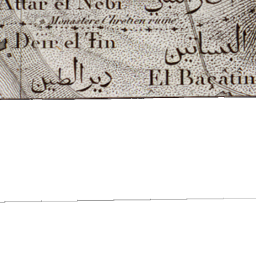 Attar el Nebi
Monastère Chrétien ruiné
Deir el Tin
البساتين
دير الطين
El Baçâtîn